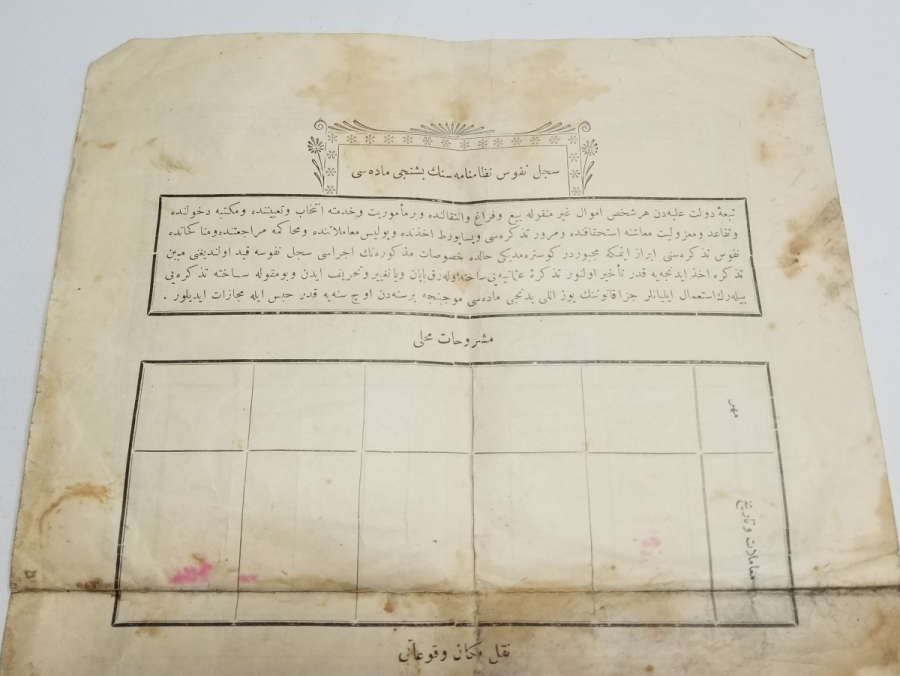 سجل نفوس نظامنامه سنك بشنجی ماده سی
تبعهٔ دولت علیه‌دن هر شخص اموال غیر منقوله بیع و فراغ وانتقالنده وبر مأموریت وخدمته انتخاب وتعییننده ومکتبه دخولنده
وتقاعد ومعزولیت معاشنه استحقاقنده ومرور تذکره‌سی وپساپورط اخذنده وپولیس معاملاتنده ومحاکمه مراجعتنده ومناکحاتده
نفوس تذکره‌سنی ابراز ایتمکه مجبوردر کوستره‌مدیکی حالده خصوصات مذکوره‌نك اجراسی سجل نفوسه قید اولندیغنی مبین
تذکره اخذ ایدنجه‌یه قدر تأخیر اولنور تذکرهٔ عثمانیه‌یی ساخته اوله‌رق یاپان ویا تغییر وتحریف ایدن وبومقوله ساخته تذکره‌یی
بیله‌رك استعمال ایلیانلر جزا قانوننك یوز اللی یدنجی ماده‌سی موجبنجه برسنه‌دن اوچ سنه‌یه قدر حبس ایله مجازات ایدیلور .
مشروحات محلی
مهر
معاملات وتاریخ
نقل مکان وقوعاتی